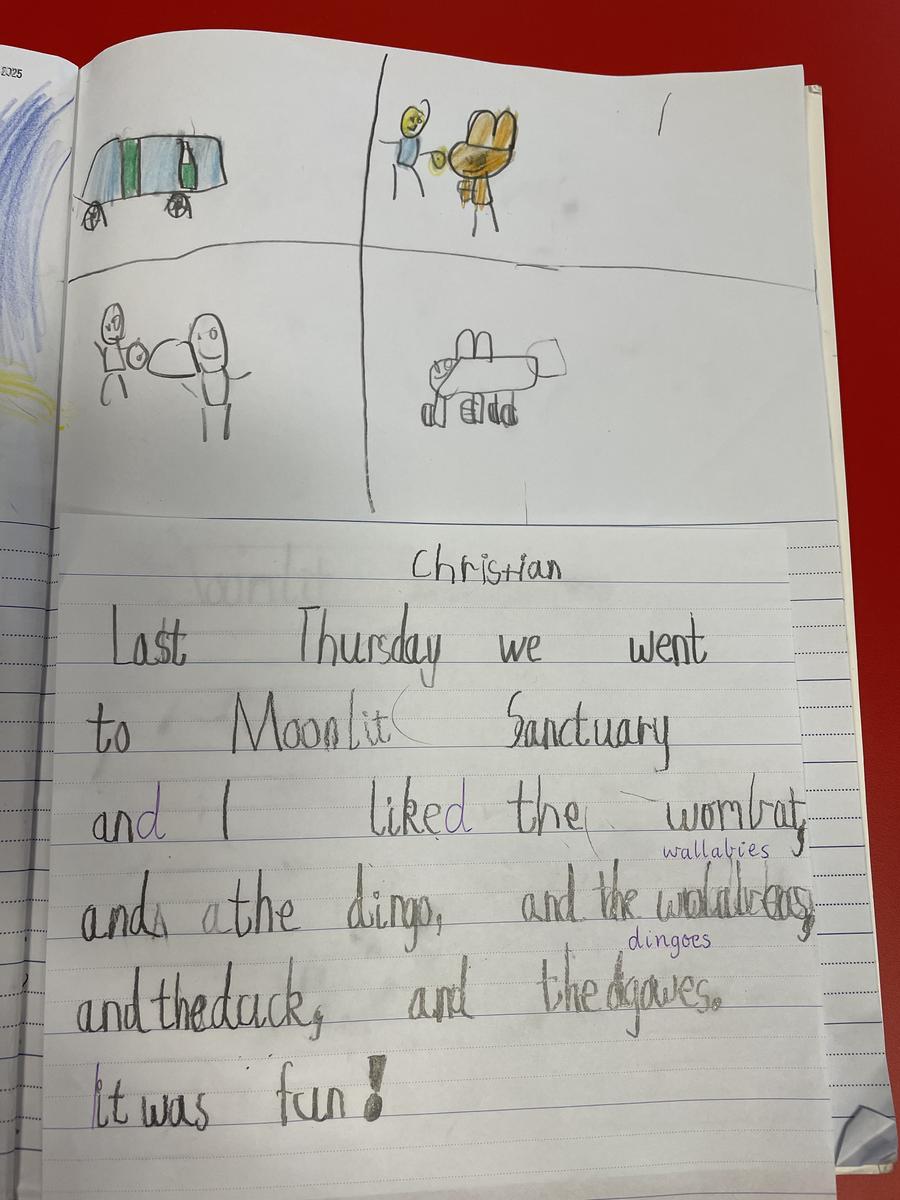 2025
Christian
Last Thursday we went
to Moonlit Sanctuary
and I liked the wombat,
wallabies
and the dingo, and the
dingoes
and the duck, and the dgowes.
It was fun!